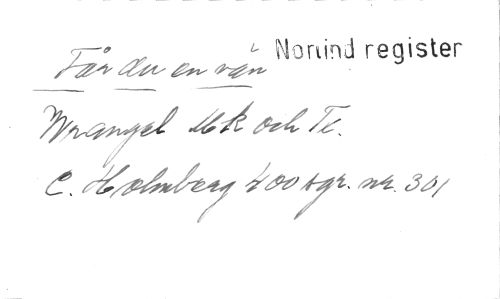 Får du en vän Norlind register
Wrangel Mk och Te.
C. Holmberg 400 sgr. nr. 301